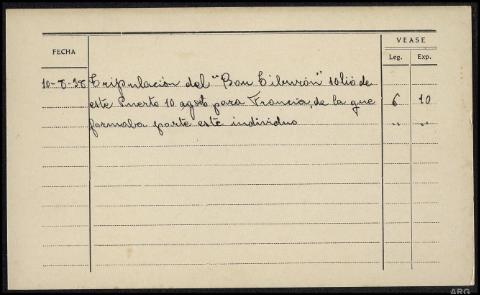 FECHA
VEASE
Leg. Exp.
10-8-38 Tripulación del "Bon Ciburón" salió de
este Puerto 10 agosto para Francia, de la que 6 10
formaba parte este individuo " "
ARG